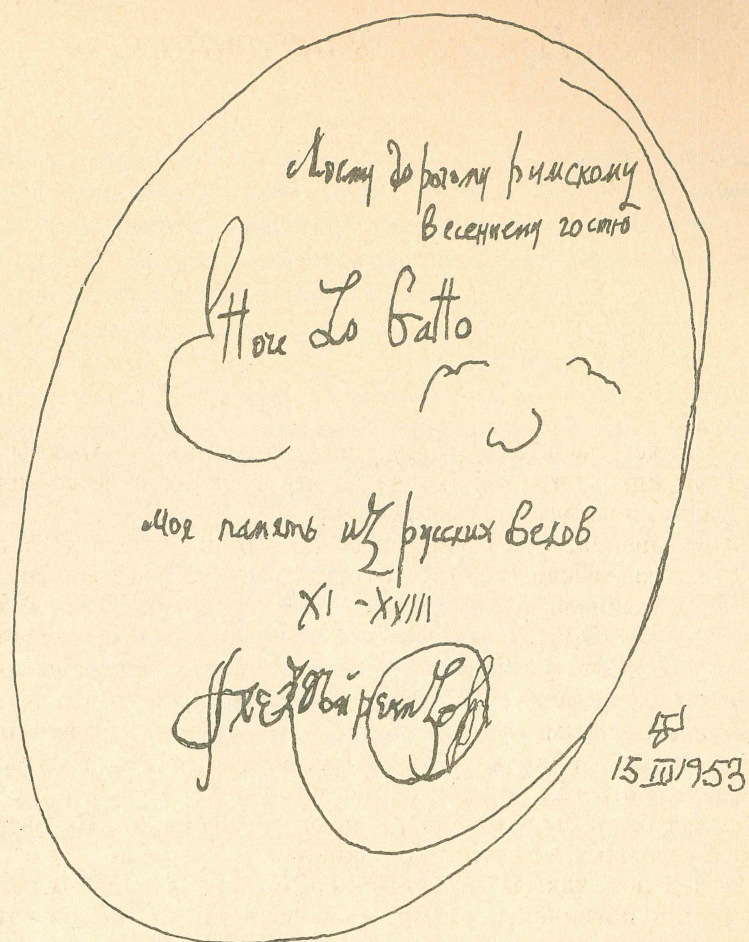 Моему дорогому римскому
весеннему гостю
Ettore Lo Gatto
моя память из русских веков
XI - XVIII
Алексей Ремизов
15 III 1953